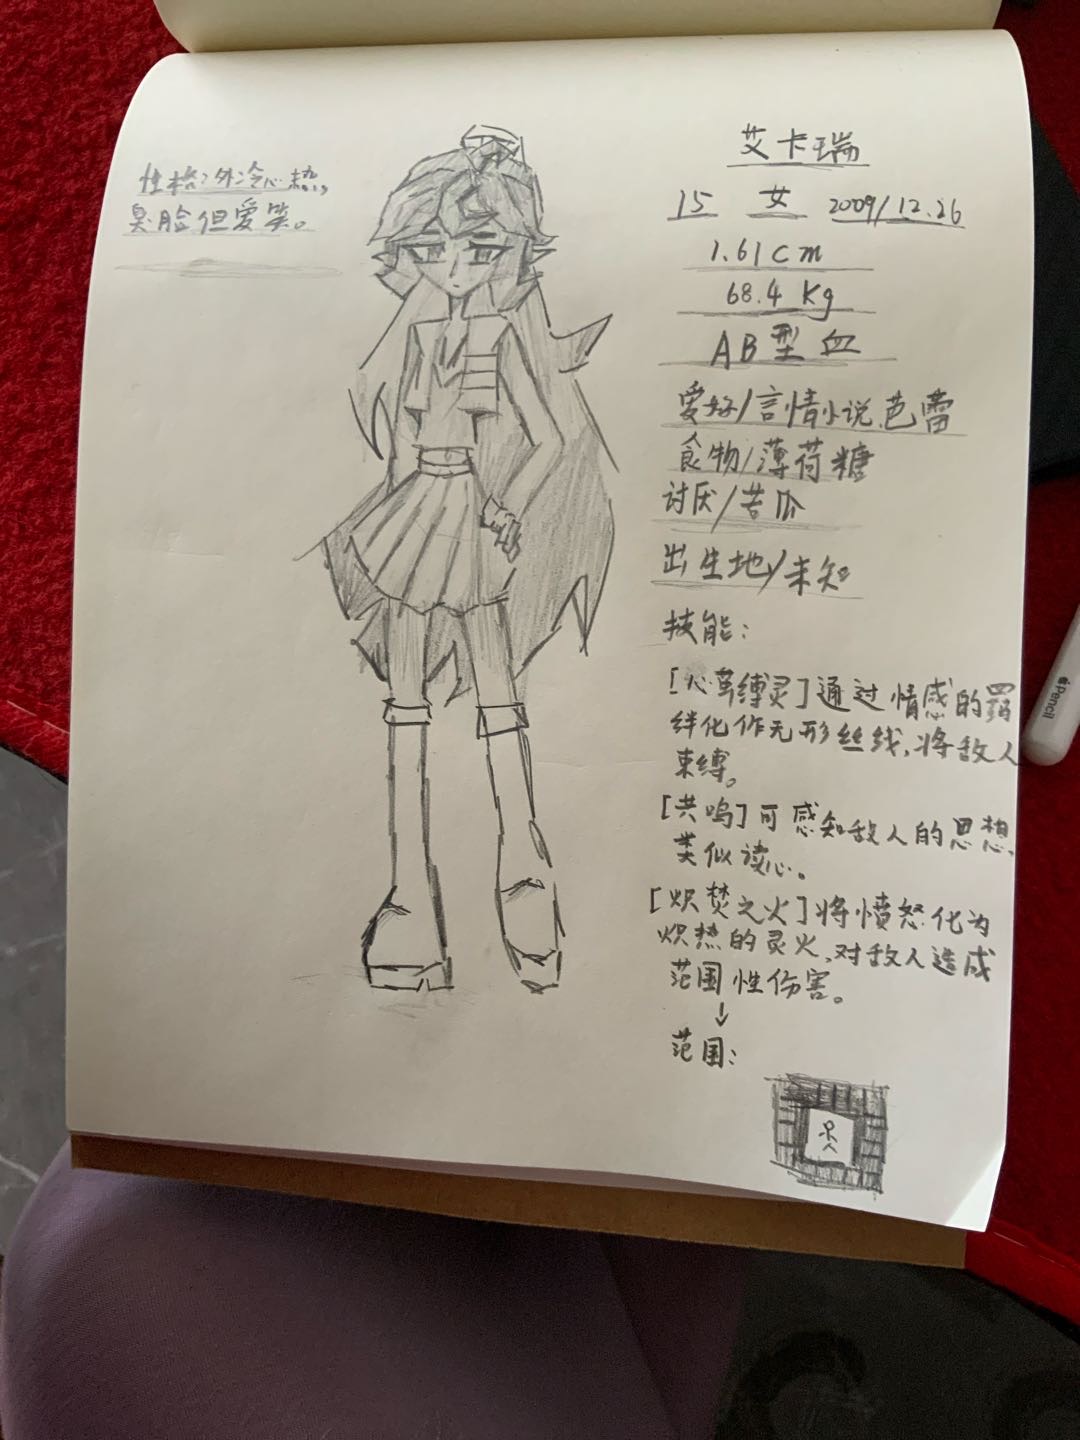 性格：外冷心热，
臭脸但爱笑。
艾卡瑞
15 女 2009/12.26
1.61cm
68.4 Kg
AB型血
爱好/言情小说.芭蕾
食物/薄荷糖
讨厌/苦瓜
出生地/未知
技能：
缚灵]通过情感的
绊化作无形丝线,将敌人
束缚。
[共鸣]可感知敌人的思想,
类似读心。
[炽焚之火]将愤怒化为
炽热的灵火,对敌人造成
范围性伤害。
↓
范围：
Pencil